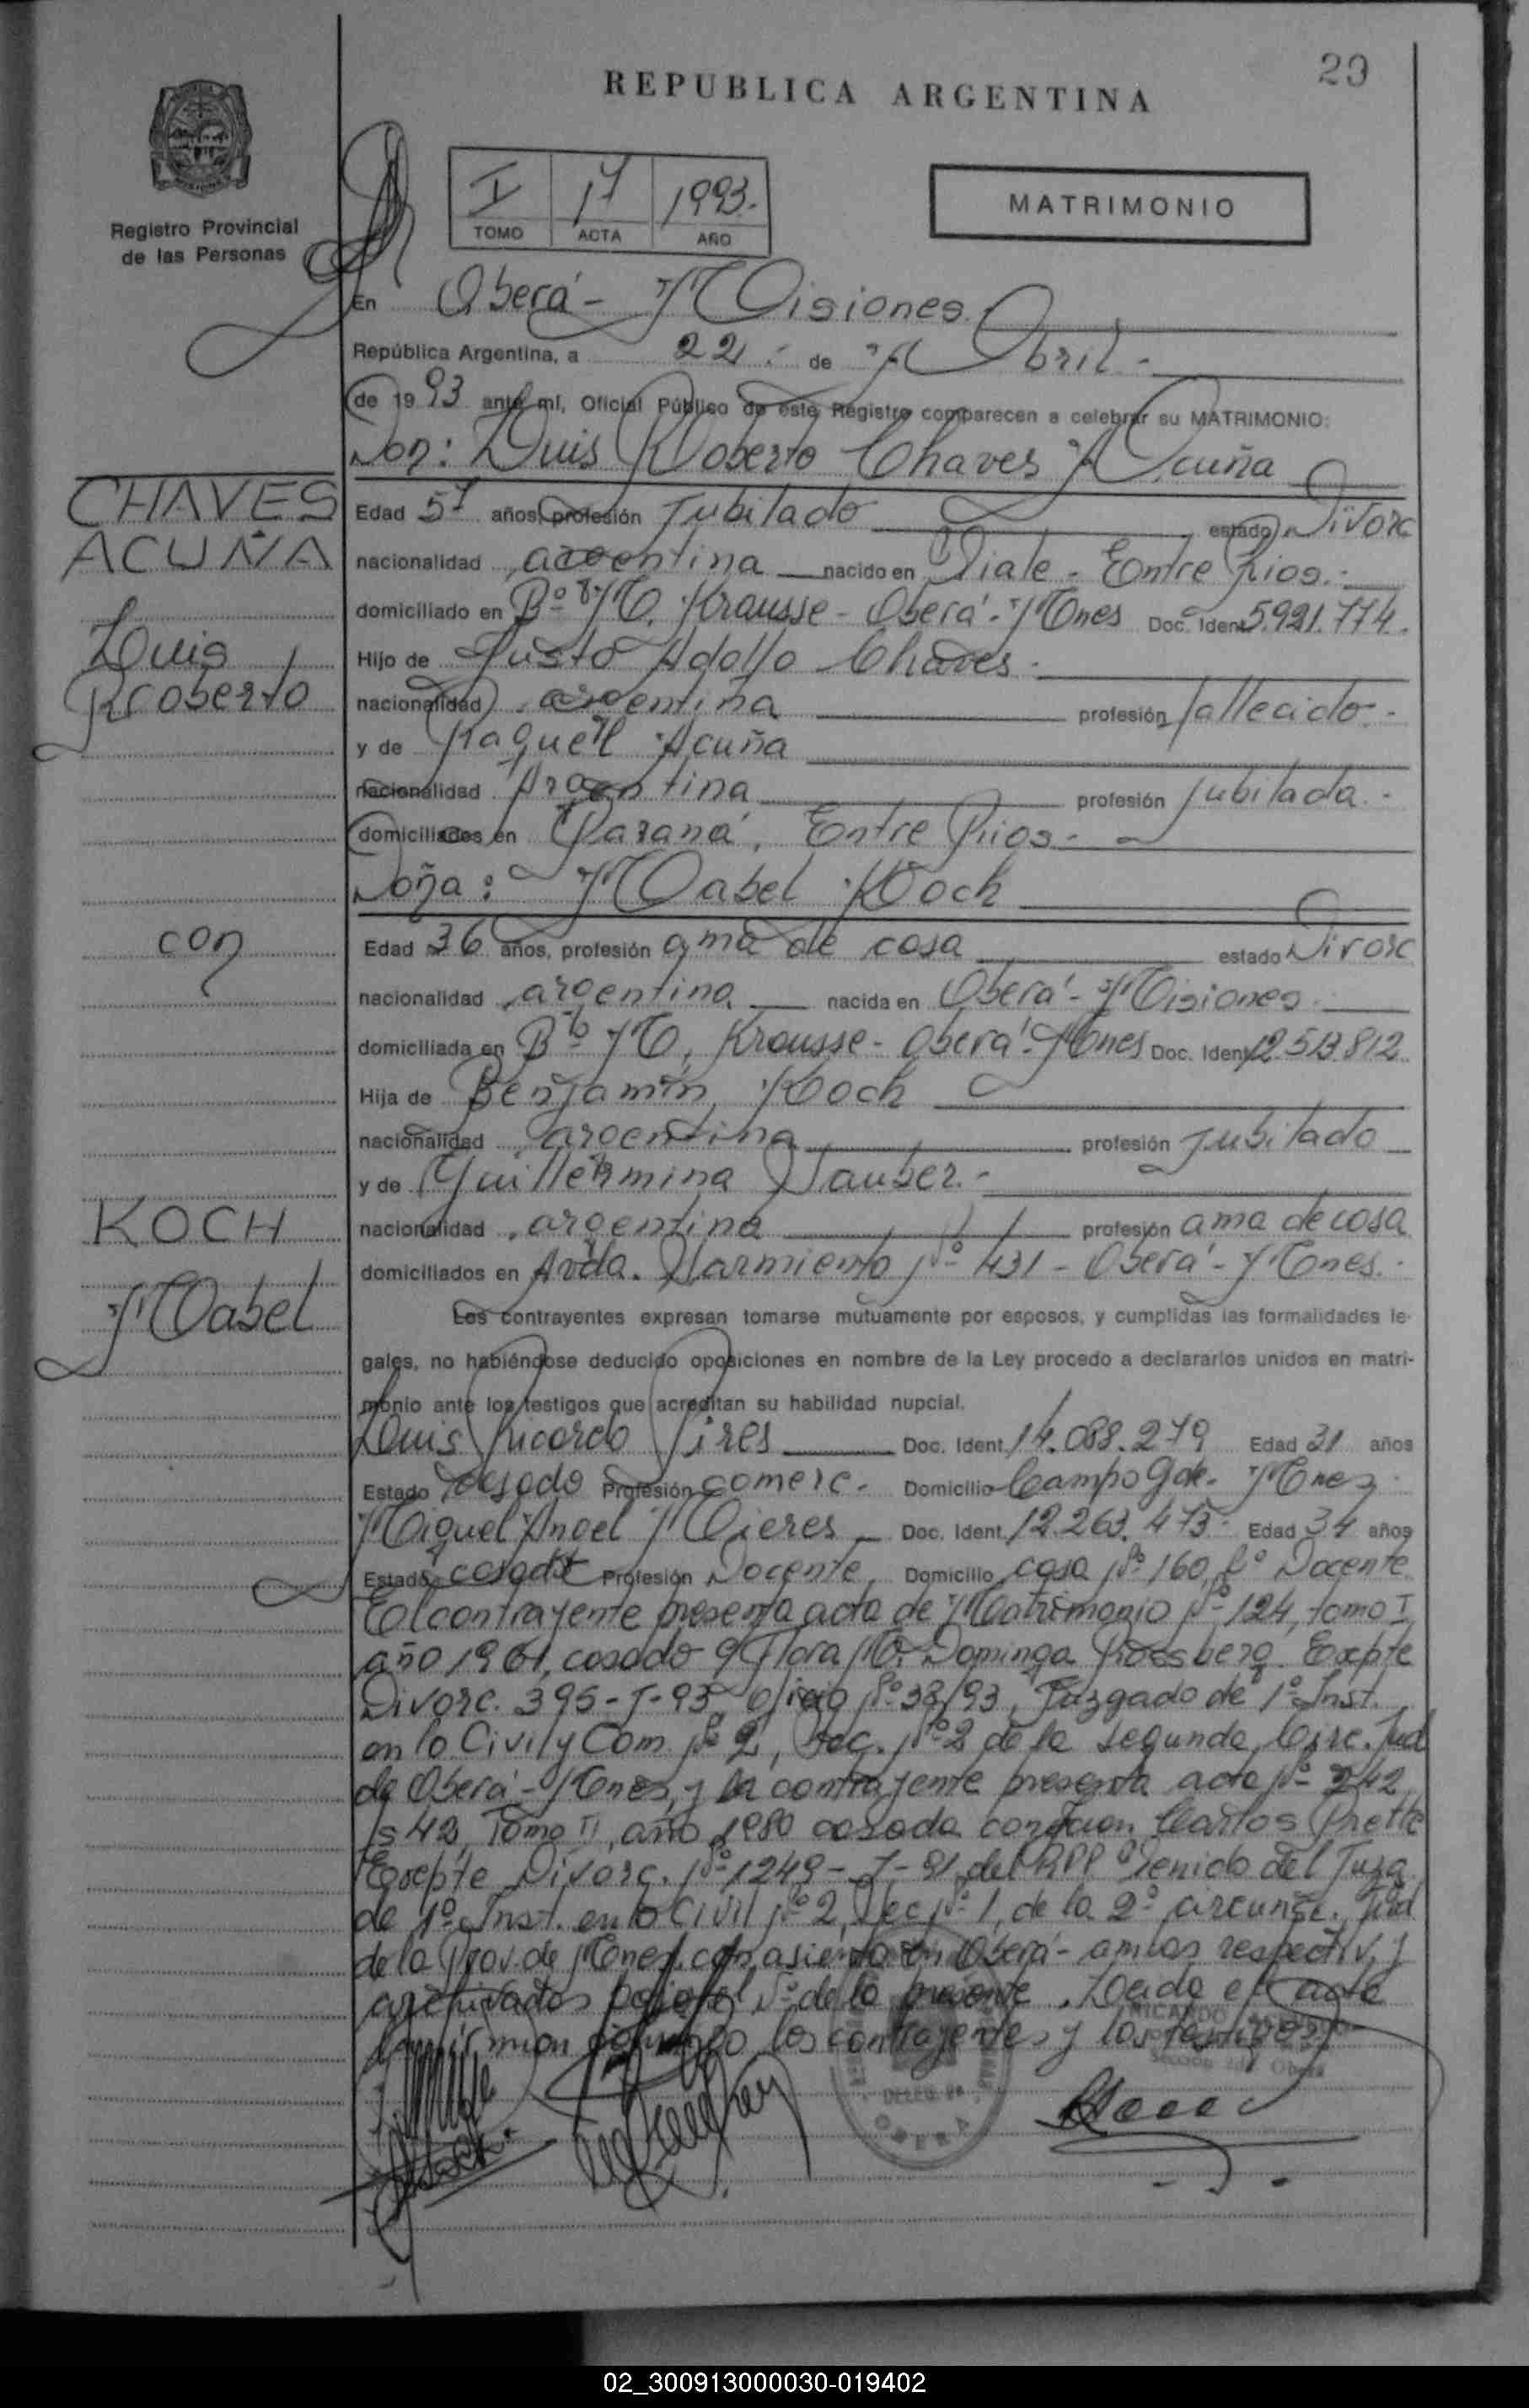 29
REPUBLICA ARGENTINA
Registro Provincial
de las Personas
I 17 1993.-
TOMO ACTA AÑO
MATRIMONIO
En Oberá - Misiones
República Argentina, a 22 de Abril -
de 1993 ante mí, Oficial Público de este Registro comparecen a celebrar su MATRIMONIO:
Don: Luis Roberto Chaves Acuña
CHAVES
ACUÑA
Luis
Roberto
Edad 57 años, profesión Jubilado estado Divorc
nacionalidad argentina nacido en Viale - Entre Rios.-
domiciliado en Bº M. Krausse - Oberá - Mnes Doc. Ident 5.921.774.
Hijo de Justo Adolfo Chaves.
nacionalidad argentina profesión fallecido.-
y de Raquel Acuña
nacionalidad Argentina profesión jubilada.-
domiciliados en Paraná, Entre Rios.-
Doña: Mabel Koch
con
Edad 36 años, profesión ama de casa estado Divorc
nacionalidad argentina nacida en Oberá - Misiones
domiciliada en Bº M. Krausse - Oberá - Mnes Doc. Ident 12.513.812
Hija de Benjamín Koch
nacionalidad argentina profesión Jubilado
y de Guillermina Sauber.-
KOCH
Mabel
nacionalidad argentina profesión ama de casa
domiciliados en Avda. Sarmiento Nº 431 - Oberá - Mnes.
Los contrayentes expresan tomarse mutuamente por esposos, y cumplidas las formalidades le-
gales, no habiéndose deducido oposiciones en nombre de la Ley procedo a declararlos unidos en matri-
monio ante los testigos que acreditan su habilidad nupcial.
Luis Ricardo Pires Doc. Ident. 14.088.279 Edad 31 años
Estado Casado Profesión Comerc. Domicilio Campo Gde. Mnes
Miguel Angel Mieres Doc. Ident. 12.263.473 Edad 34 años
Estado casado Profesión Docente Domicilio casa Nº 160, Bº Docente
El contrayente presenta acta de Matrimonio Nº 124, tomo I
año 1961, casado c/ Flora M. Dominga Rossberg. Expte
Divorc. 395-J-93, Oficio Nº 38/93, Juzgado de 1º Inst.
en lo Civil y Com. Nº 2, Sec. Nº 2 de la segunda Circ. Jud
de Oberá - Mnes, y la contrayente presenta acta Nº 242
fs 42, Tomo II, año 1980 casada con Juan Carlos Prette
Expte Divorc. Nº 1249-J-91 del RPP venido del Juzg.
de 1º Inst. en lo Civil Nº 2, Sec Nº 1, de la 2º circunsc. Jud
de la Prov. de Mnes. con asiento en Oberá - ambos respectiv. y
archivados bajo el Nº de la presente. Leida el acta
firman conmigo los contrayentes y los testigos
OBERA
02_300913000030-019402